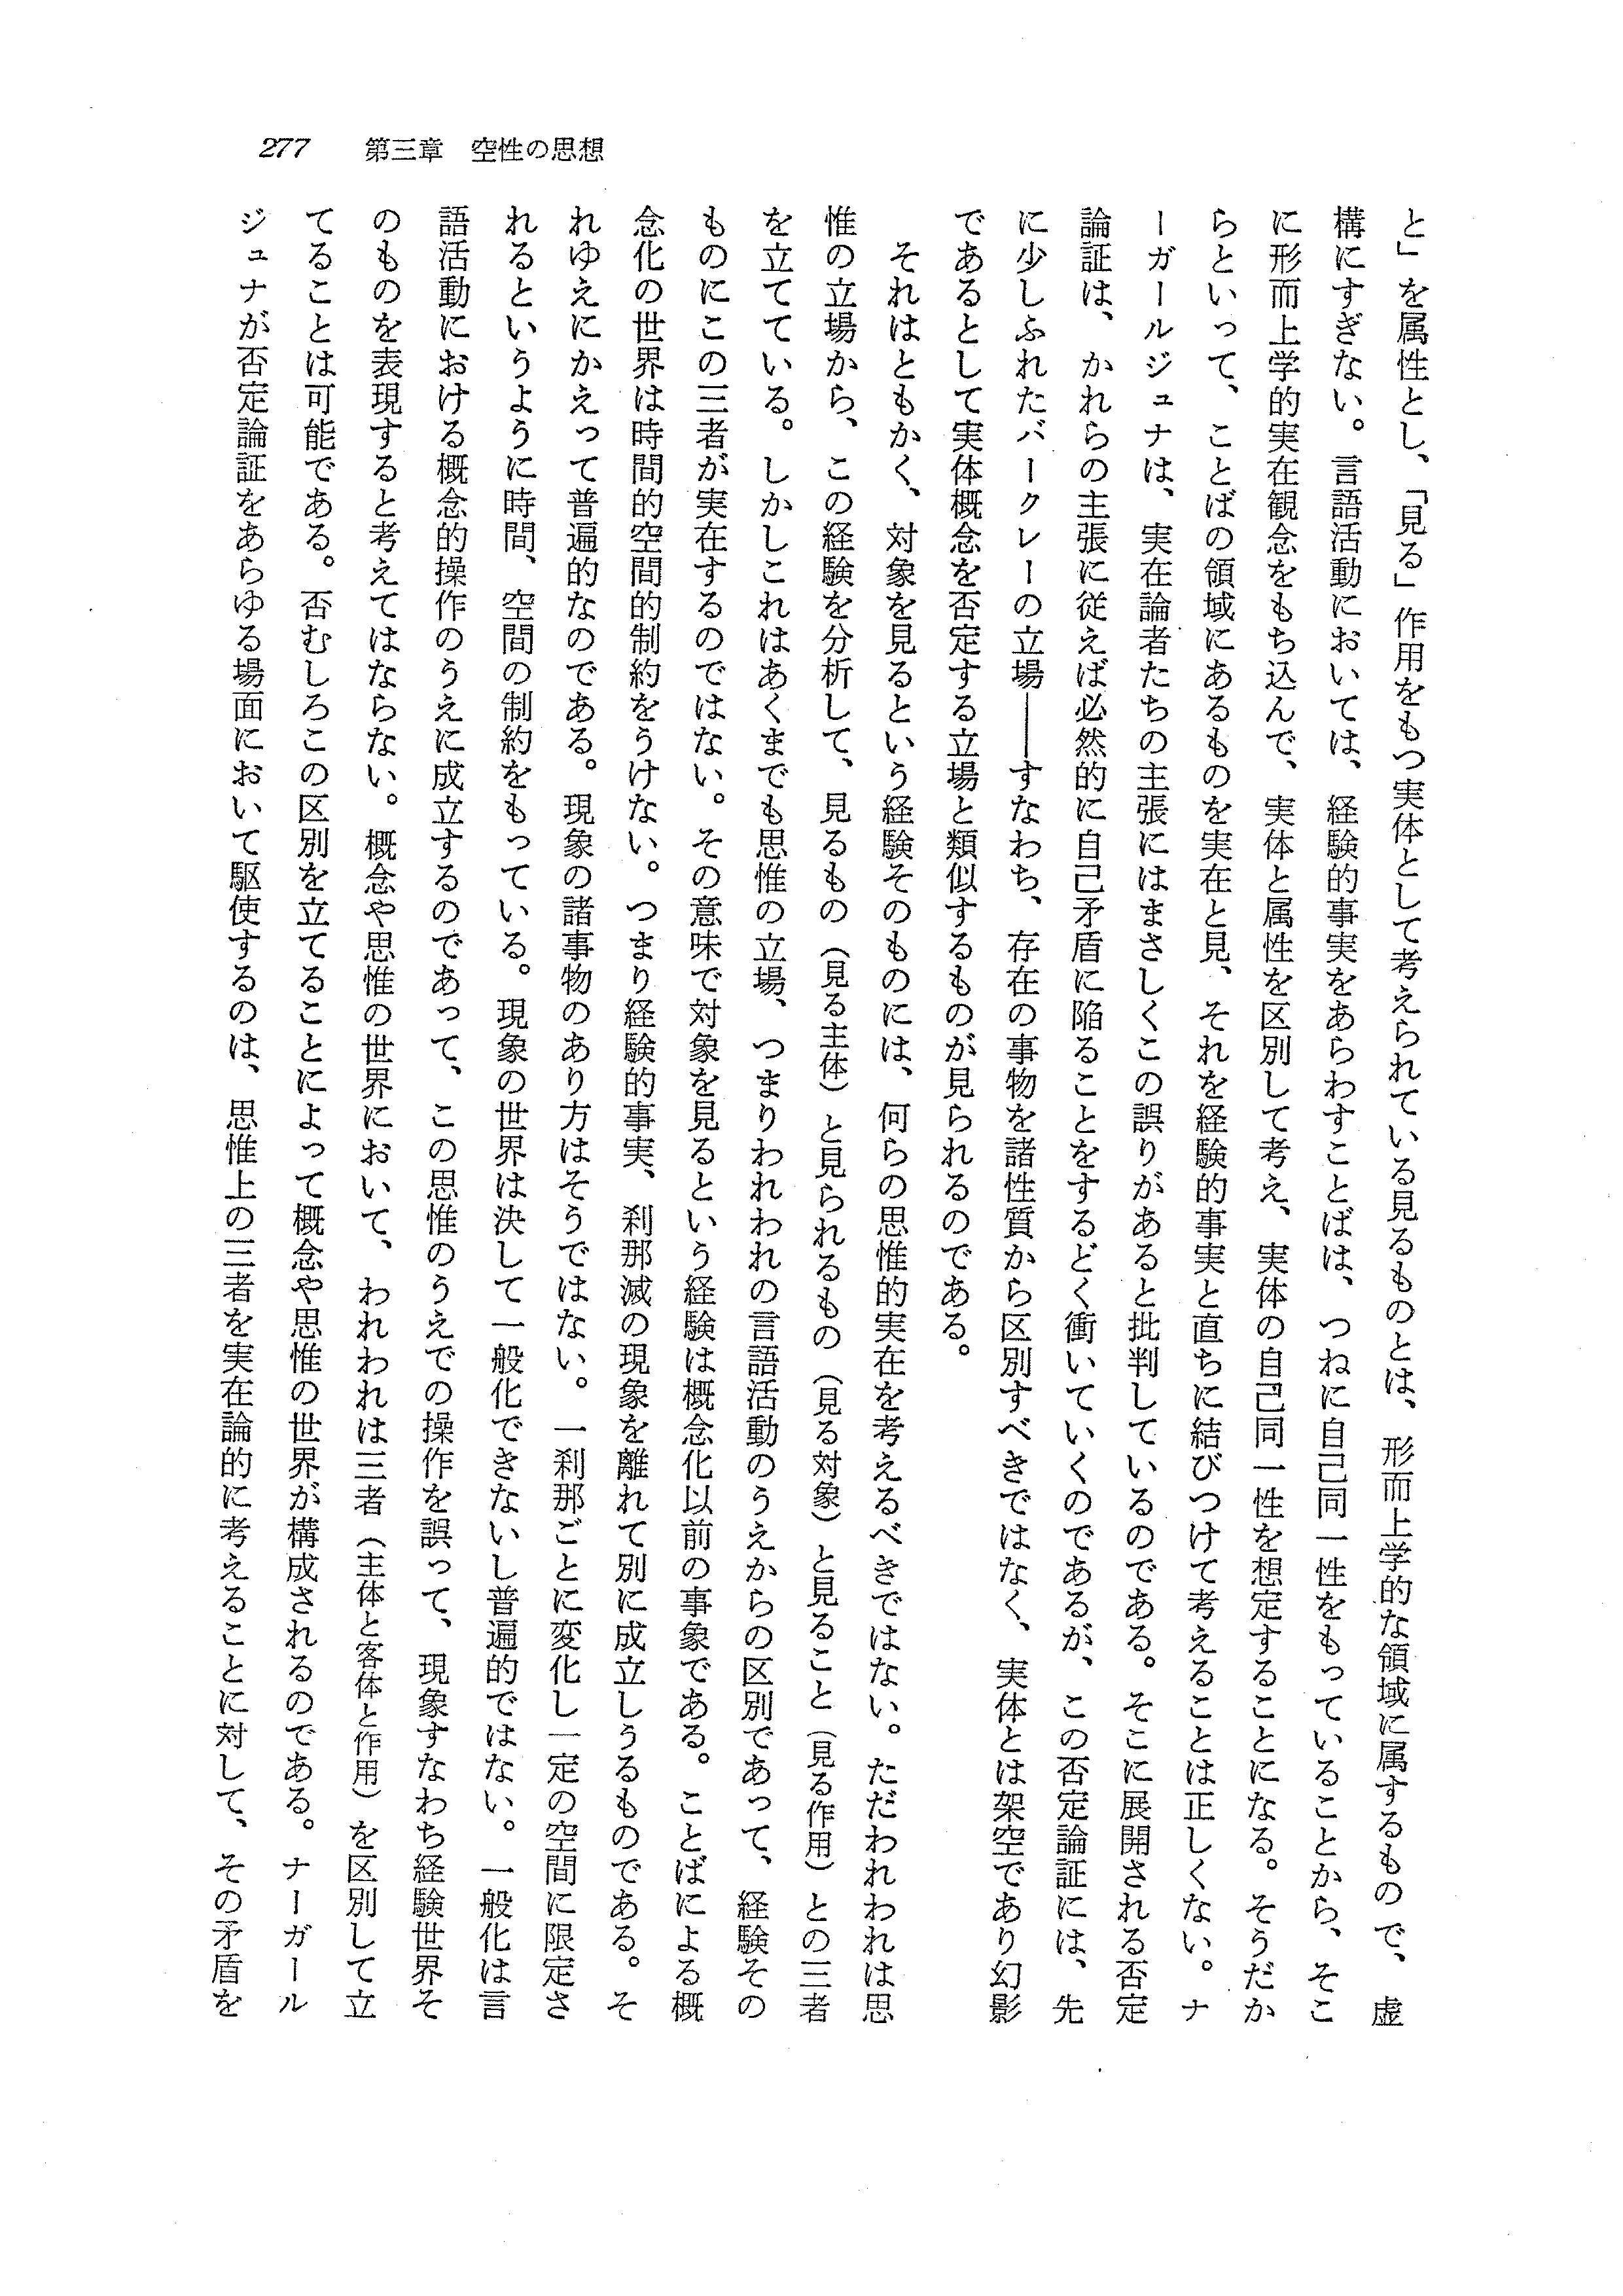 277　第三章　空性の思想
と」を属性とし、「見る」作用をもつ実体として考えられている見るものとは、形而上学的な領域に属するもので、虚
構にすぎない。言語活動においては、経験的事実をあらわすことばは、つねに自己同一性をもっていることから、そこ
に形而上学的実在観念をもち込んで、実体と属性を区別して考え、実体の自己同一性を想定することになる。そうだか
らといって、ことばの領域にあるものを実在と見、それを経験的事実と直ちに結びつけて考えることは正しくない。ナ
ーガールジュナは、実在論者たちの主張にはまさしくこの誤りがあると批判しているのである。そこに展開される否定
論証は、かれらの主張に従えば必然的に自己矛盾に陥ることをするどく衝いていくのであるが、この否定論証には、先
に少しふれたバークレーの立場――すなわち、存在の事物を諸性質から区別すべきではなく、実体とは架空であり幻影
であるとして実体概念を否定する立場と類似するものが見られるのである。
それはともかく、対象を見るという経験そのものには、何らの思惟的実在を考えるべきではない。ただわれわれは思
惟の立場から、この経験を分析して、見るもの（見る主体）と見られるもの（見る対象）と見ること（見る作用）との三者
を立てている。しかしこれはあくまでも思惟の立場、つまりわれわれの言語活動のうえからの区別であって、経験その
ものにこの三者が実在するのではない。その意味で対象を見るという経験は概念化以前の事象である。ことばによる概
念化の世界は時間的空間的制約をうけない。つまり経験的事実、刹那滅の現象を離れて別に成立しうるものである。そ
れゆえにかえって普遍的なのである。現象の諸事物のあり方はそうではない。一刹那ごとに変化し一定の空間に限定さ
れるというように時間、空間の制約をもっている。現象の世界は決して一般化できないし普遍的ではない。一般化は言
語活動における概念的操作のうえに成立するのであって、この思惟のうえでの操作を誤って、現象すなわち経験世界そ
のものを表現すると考えてはならない。概念や思惟の世界において、われわれは三者（主体と客体と作用）を区別して立
てることは可能である。否むしろこの区別を立てることによって概念や思惟の世界が構成されるのである。ナーガール
ジュナが否定論証をあらゆる場面において駆使するのは、思惟上の三者を実在論的に考えることに対して、その矛盾を